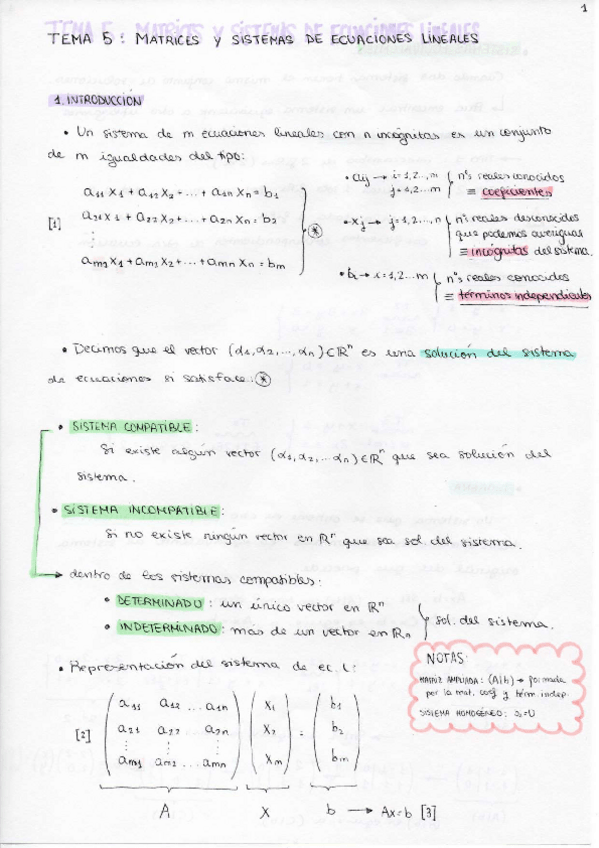 1
TEMA 5: MATRICES Y SISTEMAS DE ECUACIONES LINEALES
1. INTRODUCCIÓN
• Un sistema de m ecuaciones lineales con n incógnitas es un conjunto
de m igualdades del tipo:
[1]
a11 x1 + a12 x2 + ... + a1n xn = b1
a21 x1 + a22 x2 + ... + a2n xn = b2
⋮
am1 x1 + am2 x2 + ... + amn xn = bm
} ⊛
• aij → i=1,2...,m
j=1,2...m
{ nºs reales conocidos
≡ coeficientes
• xj → j=1,2...,n { nºs reales desconocidos
que podemos averiguar
≡ incógnitas del sistema.
• bi → i=1,2...m { nºs reales conocidos
≡ términos independientes
• Decimos que el vector (α1, α2, ..., αn) ∈ ℝⁿ es una solución del sistema
de ecuaciones si satisface: ⊛
• SISTEMA COMPATIBLE:
Si existe algún vector (α1, α2, ... αn) ∈ ℝⁿ que sea solución del
sistema.
• SISTEMA INCOMPATIBLE:
Si no existe ningún vector en ℝⁿ que sea sol del sistema.
→ dentro de los sistemas compatibles:
• DETERMINADO: un único vector en ℝⁿ
• INDETERMINADO: más de un vector en ℝn
} sol. del sistema.
• Representación del sistema de ec. l:
[2]
( a11 a12 ... a1n ) ( x1 ) = ( b1 )
( a21 a22 a2n ) ( x2 ) ( b2 )
( ⋮ ⋮ ⋮ )
( am1 am2 ... amn ) ( xm ) ( bm )
A X b → Ax=b [3]
NOTAS:
MATRIZ AMPLIADA: (A|b) → formada
por la mat. coef y térm. indep.
SISTEMA HOMOGÉNEO: